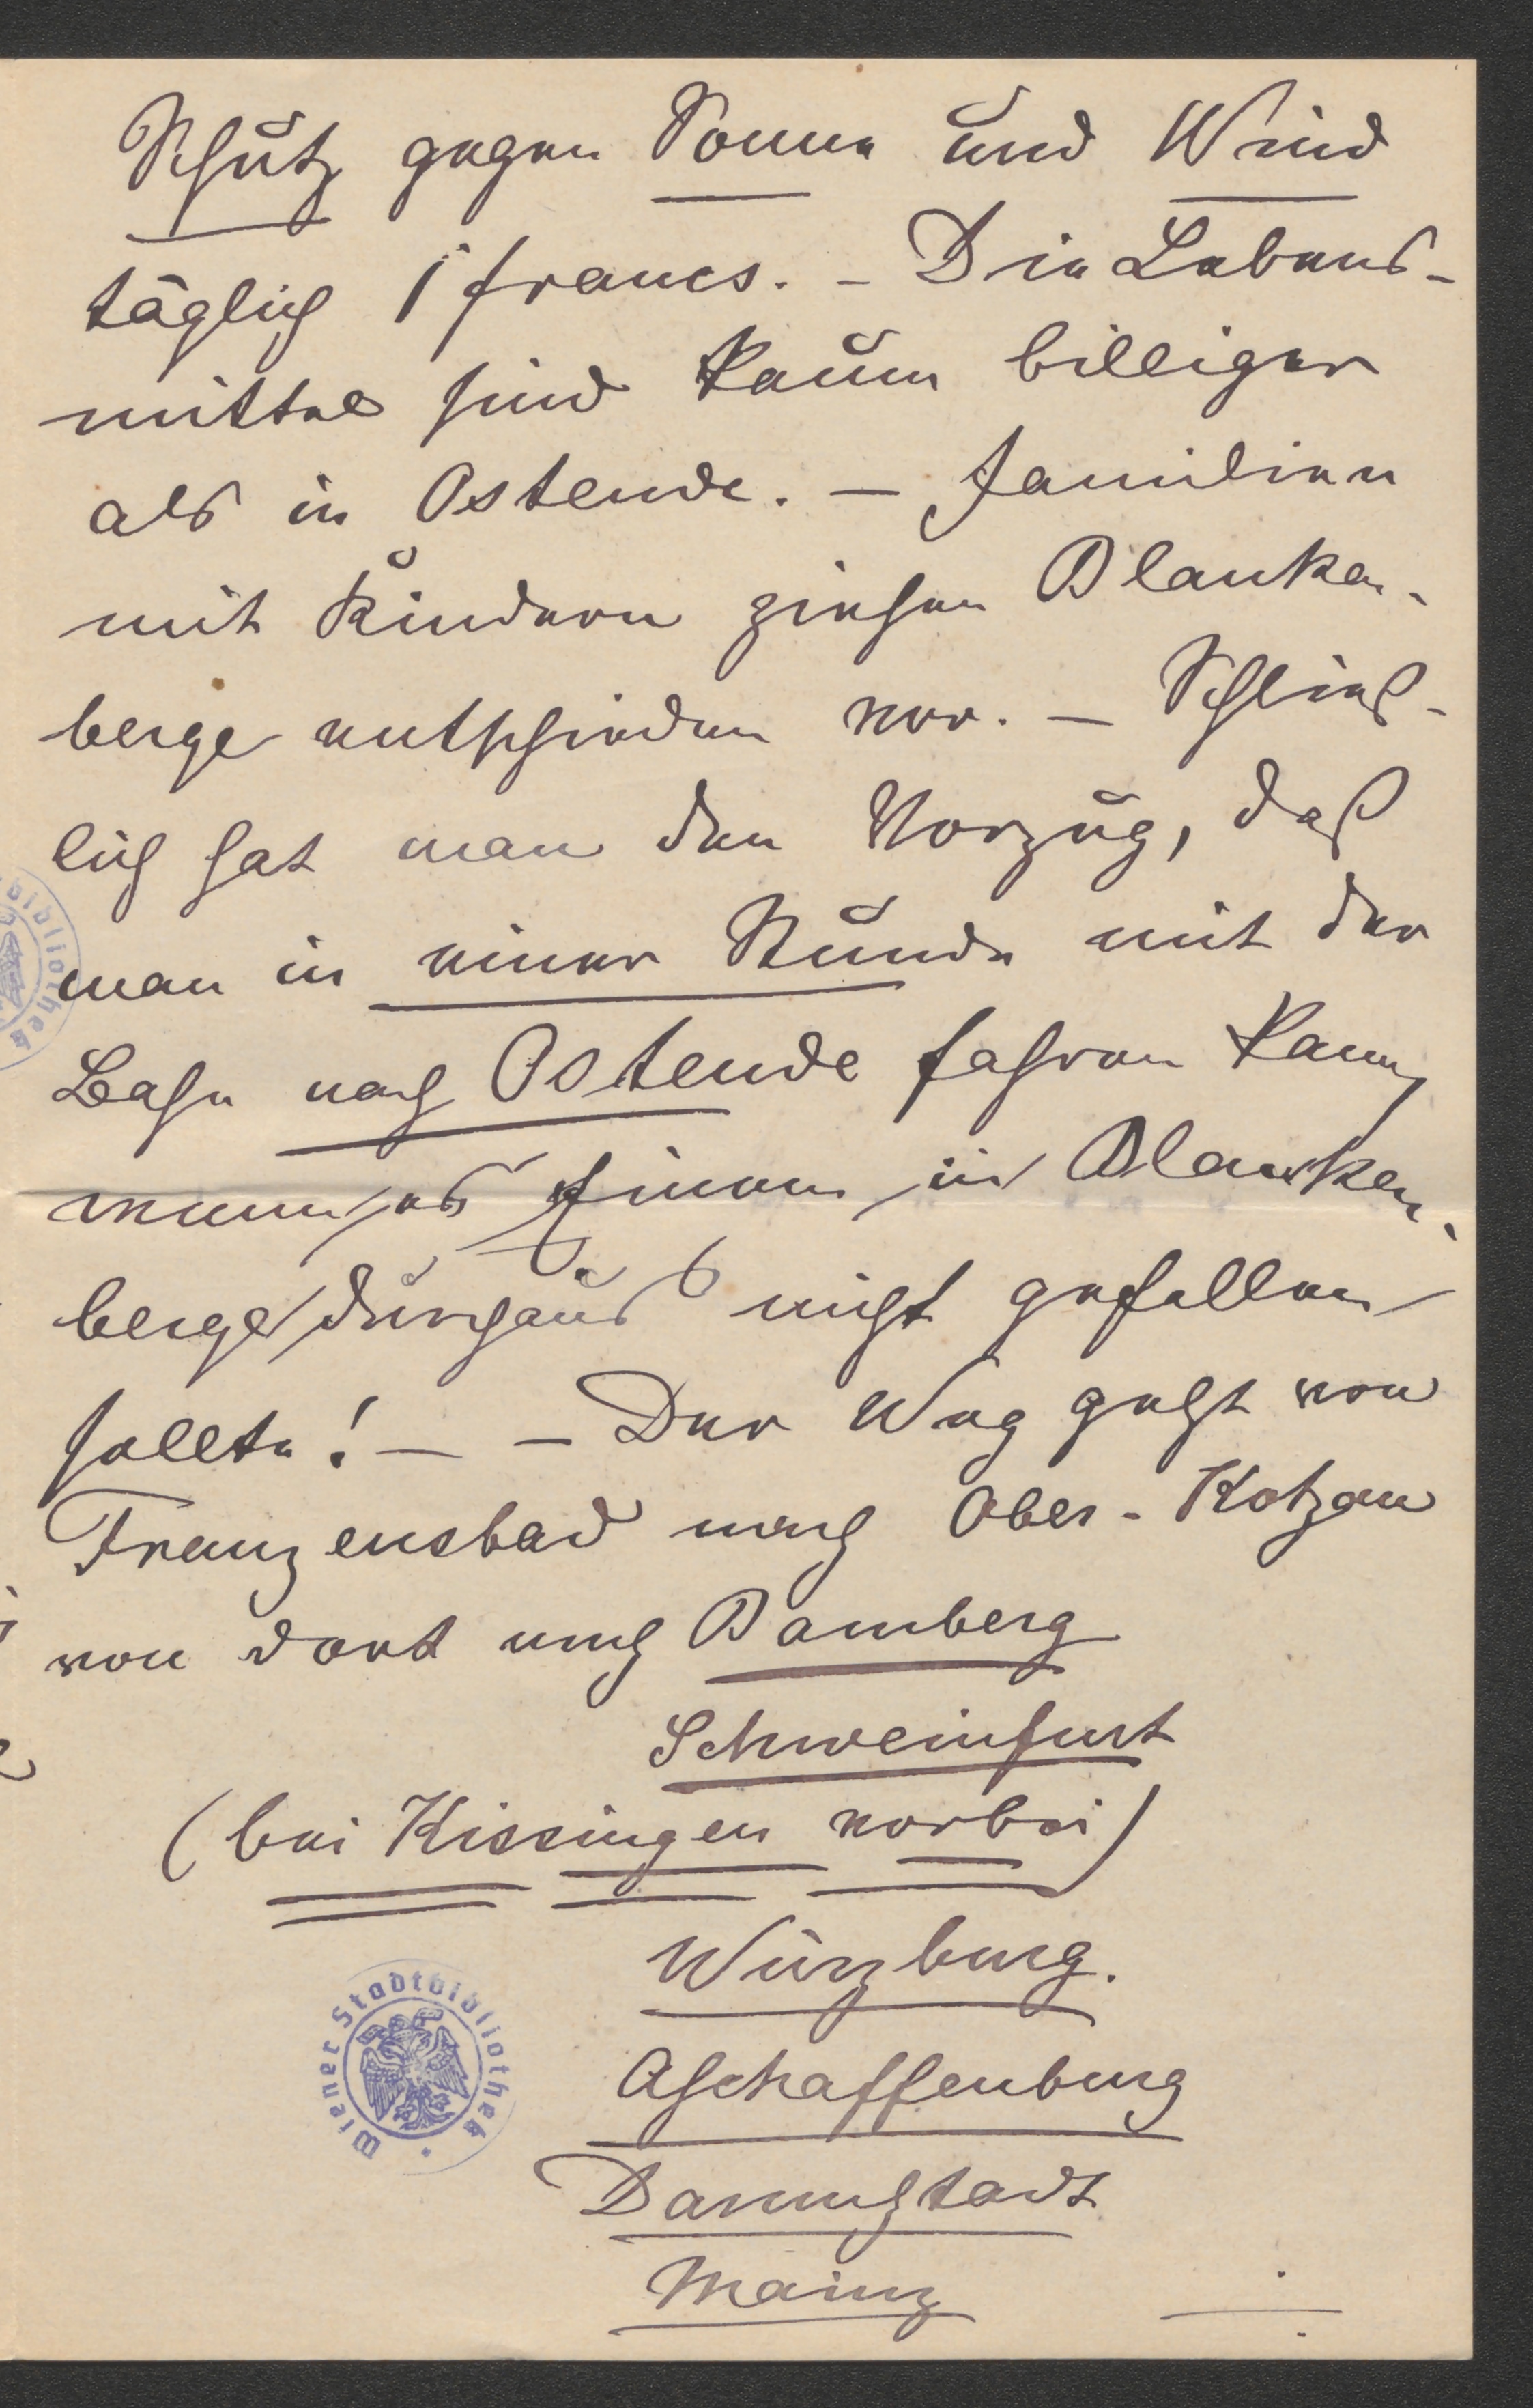 Schutz gegen Sonne und Wind
täglich 1 francs. - Die Lebens-
mittel sind kaum billiger
als in Ostende. - Familien
mit Kindern ziehen Blanken-
berge entschieden vor. - Schließ-
lich hat man den Vorzug, daß
man in einer Stunde mit der
Bahn nach Ostende fahren kann,
wenn es Einem in Blanken-
berge durchaus nicht gefallen
sollte! - - Der Weg geht von
Franzensbad nach Ober-Kotzau
von dort nach Bamberg
Schweinfurt
(bei Kissingen vorbei)
Würzburg.
Aschaffenburg
Darmstadt
Mainz
Wiener Stadtbibliothek
bibliothek